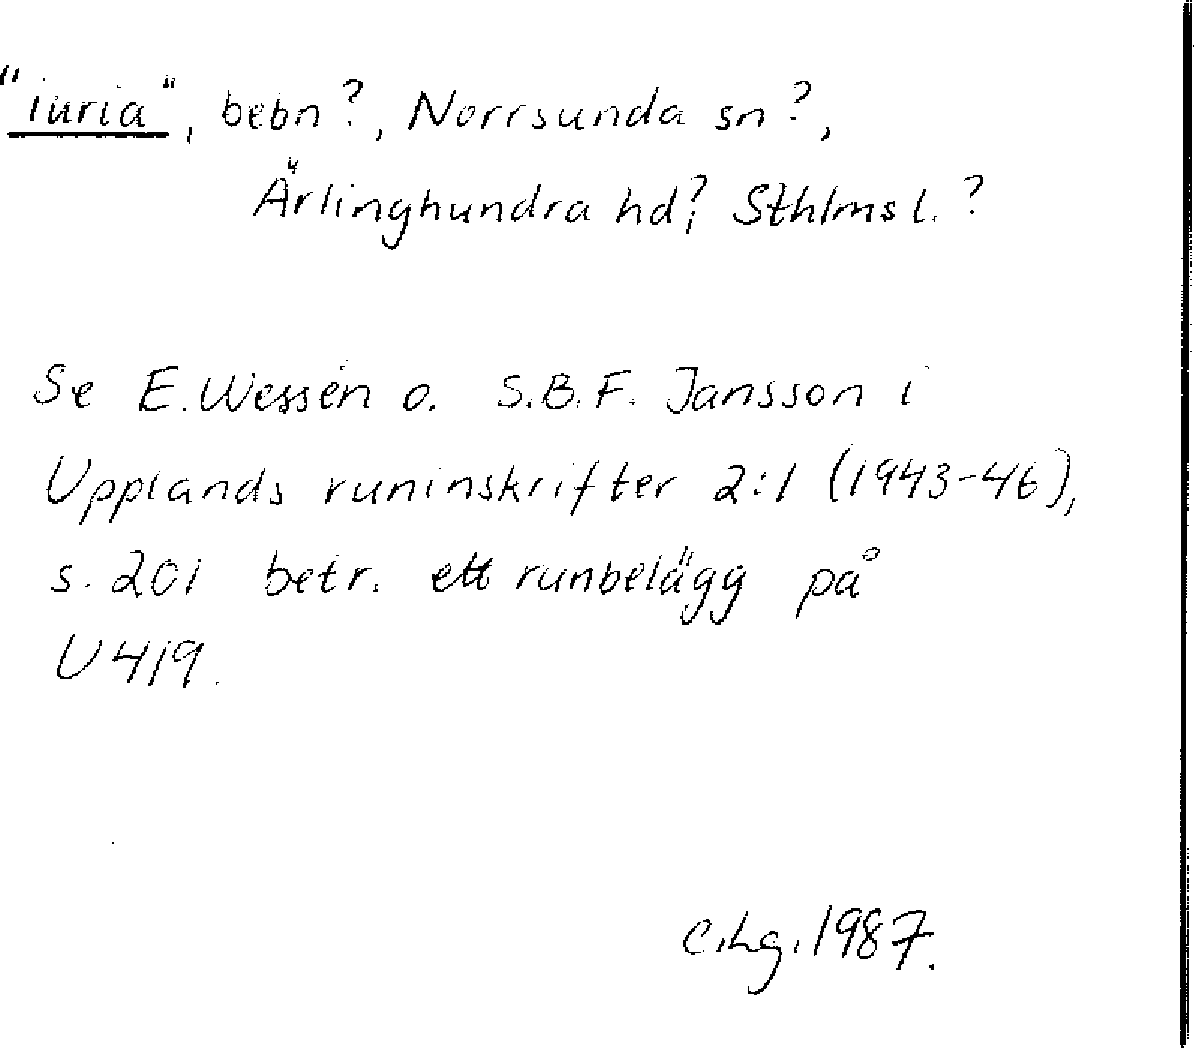 "iuria", bebn?, Norrsunda sn?,
Ärlinghundra hd? Sthlms l.?
Se E. Wessén o. S.B.F. Jansson i
Upplands runinskrifter 2:1 (1943-46),
s. 201 betr. ett runbelägg på
U 419.
C.Lg. 1987.